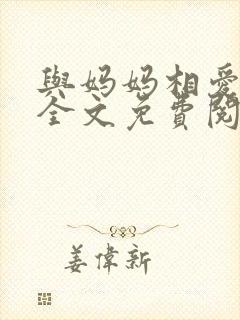 與妈妈相爱
全文免費閱
姜偉新